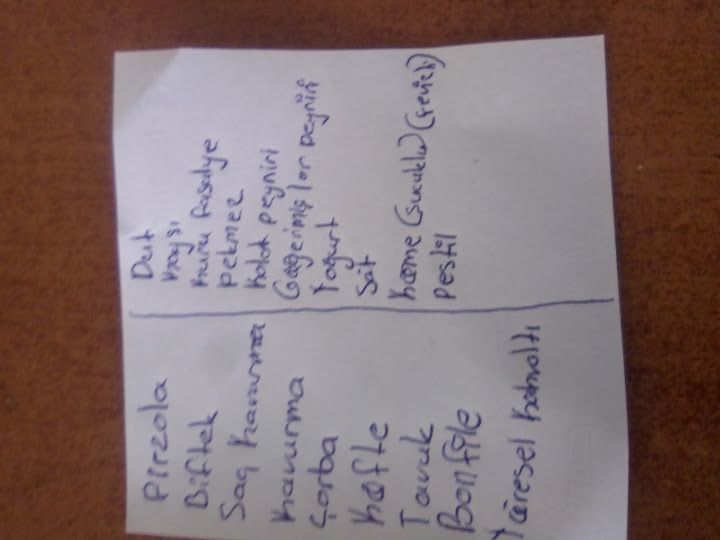 Pirzola
Biftek
Saç kavurma
Kavurma
Çorba
Köfte
Tavuk
Bonfile
Yöresel kahvaltı
Dut
Kayısı
Kuru fasulye
Pekmez
Kolot peyniri
Göğermiş lor peyniri
Yoğurt
Süt
Köme (sucuklu) (cevizli)
Pestil